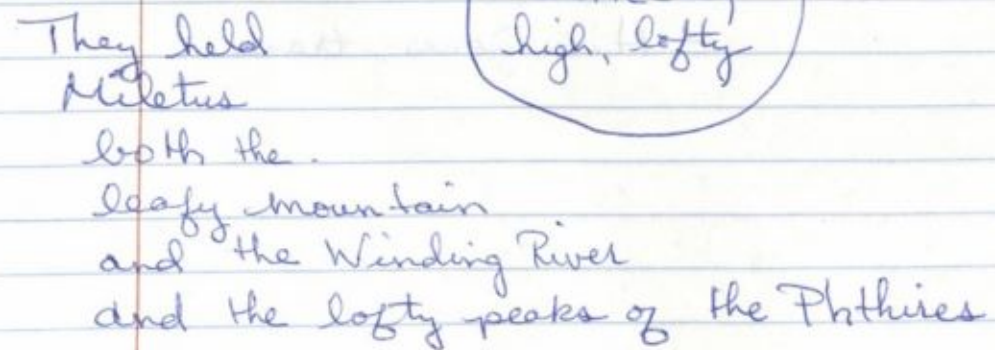 They held
high, lofty
Miletus
both the.
leafy mountain
and the Winding River
and the lofty peaks of the Phthires